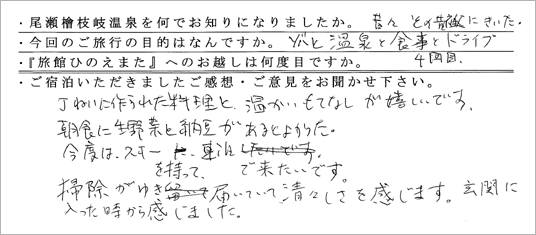 ・尾瀬檜枝岐温泉を何でお知りになりましたか。 昔ん その昔 にきいた。
・今回のご旅行の目的はなんですか。 ソバと温泉と食事とドライブ
・『旅館ひのえまた』へのお越しは何度目ですか。 4回目.
・ご宿泊いただきましたご感想・ご意見をお聞かせ下さい。
丁ねいに作られた料理と、温かいもてなしが嬉しいです。
朝食に生野菜と納豆があるとよかった。
今度は、スキー を持って、 で来たいです。
掃除がゆき届いていて清々しさを感じます。玄関に
入った時から感じました。